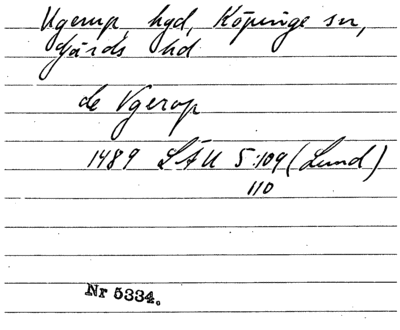 Ugerup, hgd, Köpinge sn,
Gärds hd
de Vgerop
1489 LÄU 5:109 (Lund)
110
Nr 5334.